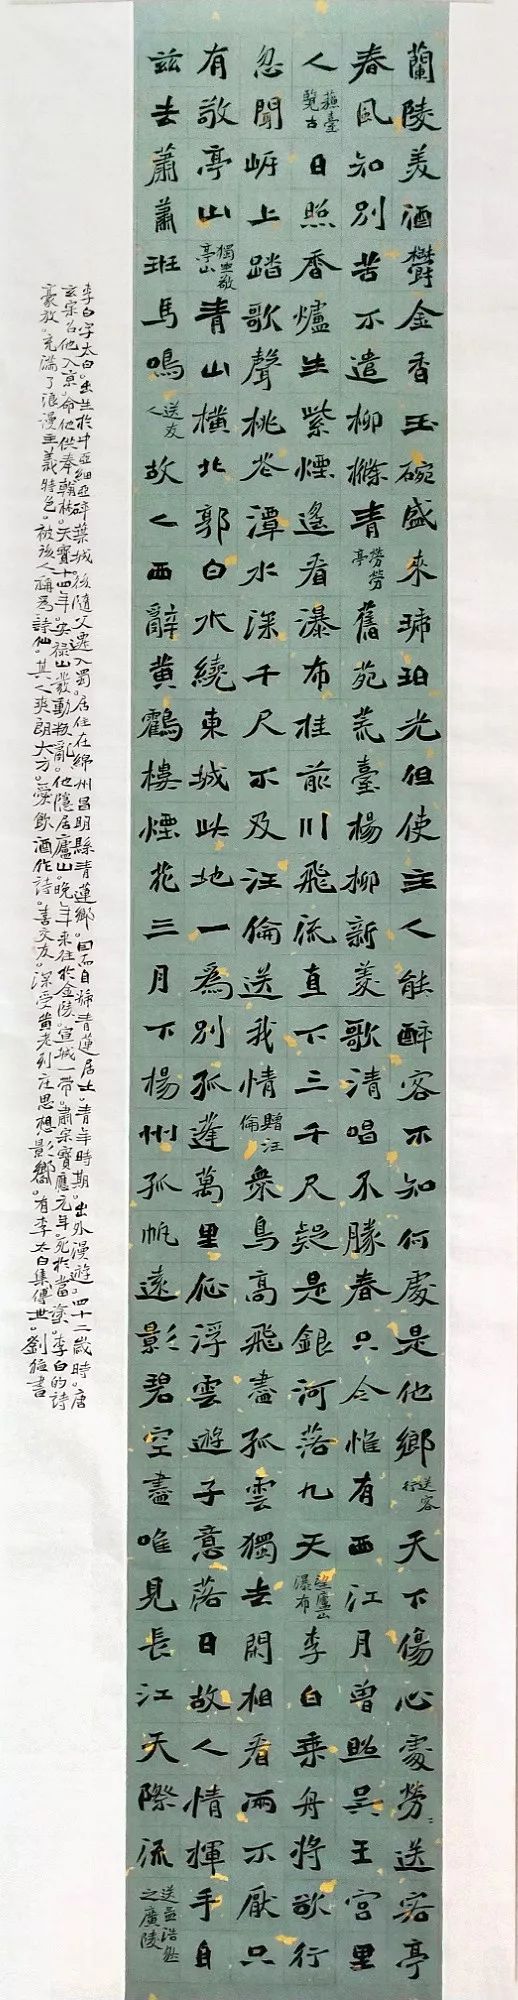 蘭陵美酒鬱金香玉碗盛來琥珀光但使主人能醉客不知何處是他鄉送客行天下傷心處勞々送客亭
春風知別苦不遣柳條青勞勞亭舊苑荒臺楊柳新菱歌清唱不勝春只今惟有西江月曾照吳王宮里
人蘇臺覽古日照香爐生紫煙遙看瀑布挂前川飛流直下三千尺疑是銀河落九天望廬山瀑布李白乘舟將欲行
忽聞岍上踏歌聲桃花潭水深千尺不及汪倫送我情贈汪倫衆鳥高飛盡孤雲獨去閑相看兩不厭只
有敬亭山獨坐敬亭山青山橫北郭白水繞東城此地一爲別孤蓬萬里征浮雲遊子意落日故人情揮手自
茲去蕭蕭班馬鳴送友人故人西辭黃鶴樓煙花三月下楊州孤帆遠影碧空盡唯見長江天際流送孟浩然之廣陵
李白字太白。出生於中亞細亞碎葉城。後隨父遷入蜀。居住在綿州昌明縣青蓮鄉。因而自號青蓮居士。青年時期。出外漫遊。四十二歲時。唐
玄宗召他入京。命他供奉翰林。天寶十四年。安祿山發動叛亂。他隱居廬山。晚年來往於金陵。宣城一帶。肅宗寶應元年。死於當塗。李白的詩
豪放。充滿了浪漫主義特色。被後人稱爲詩仙。其人爽朗大方。愛飲酒作詩。喜交友。深受黃老列莊思想影響。有李太白集傳世。劉 書